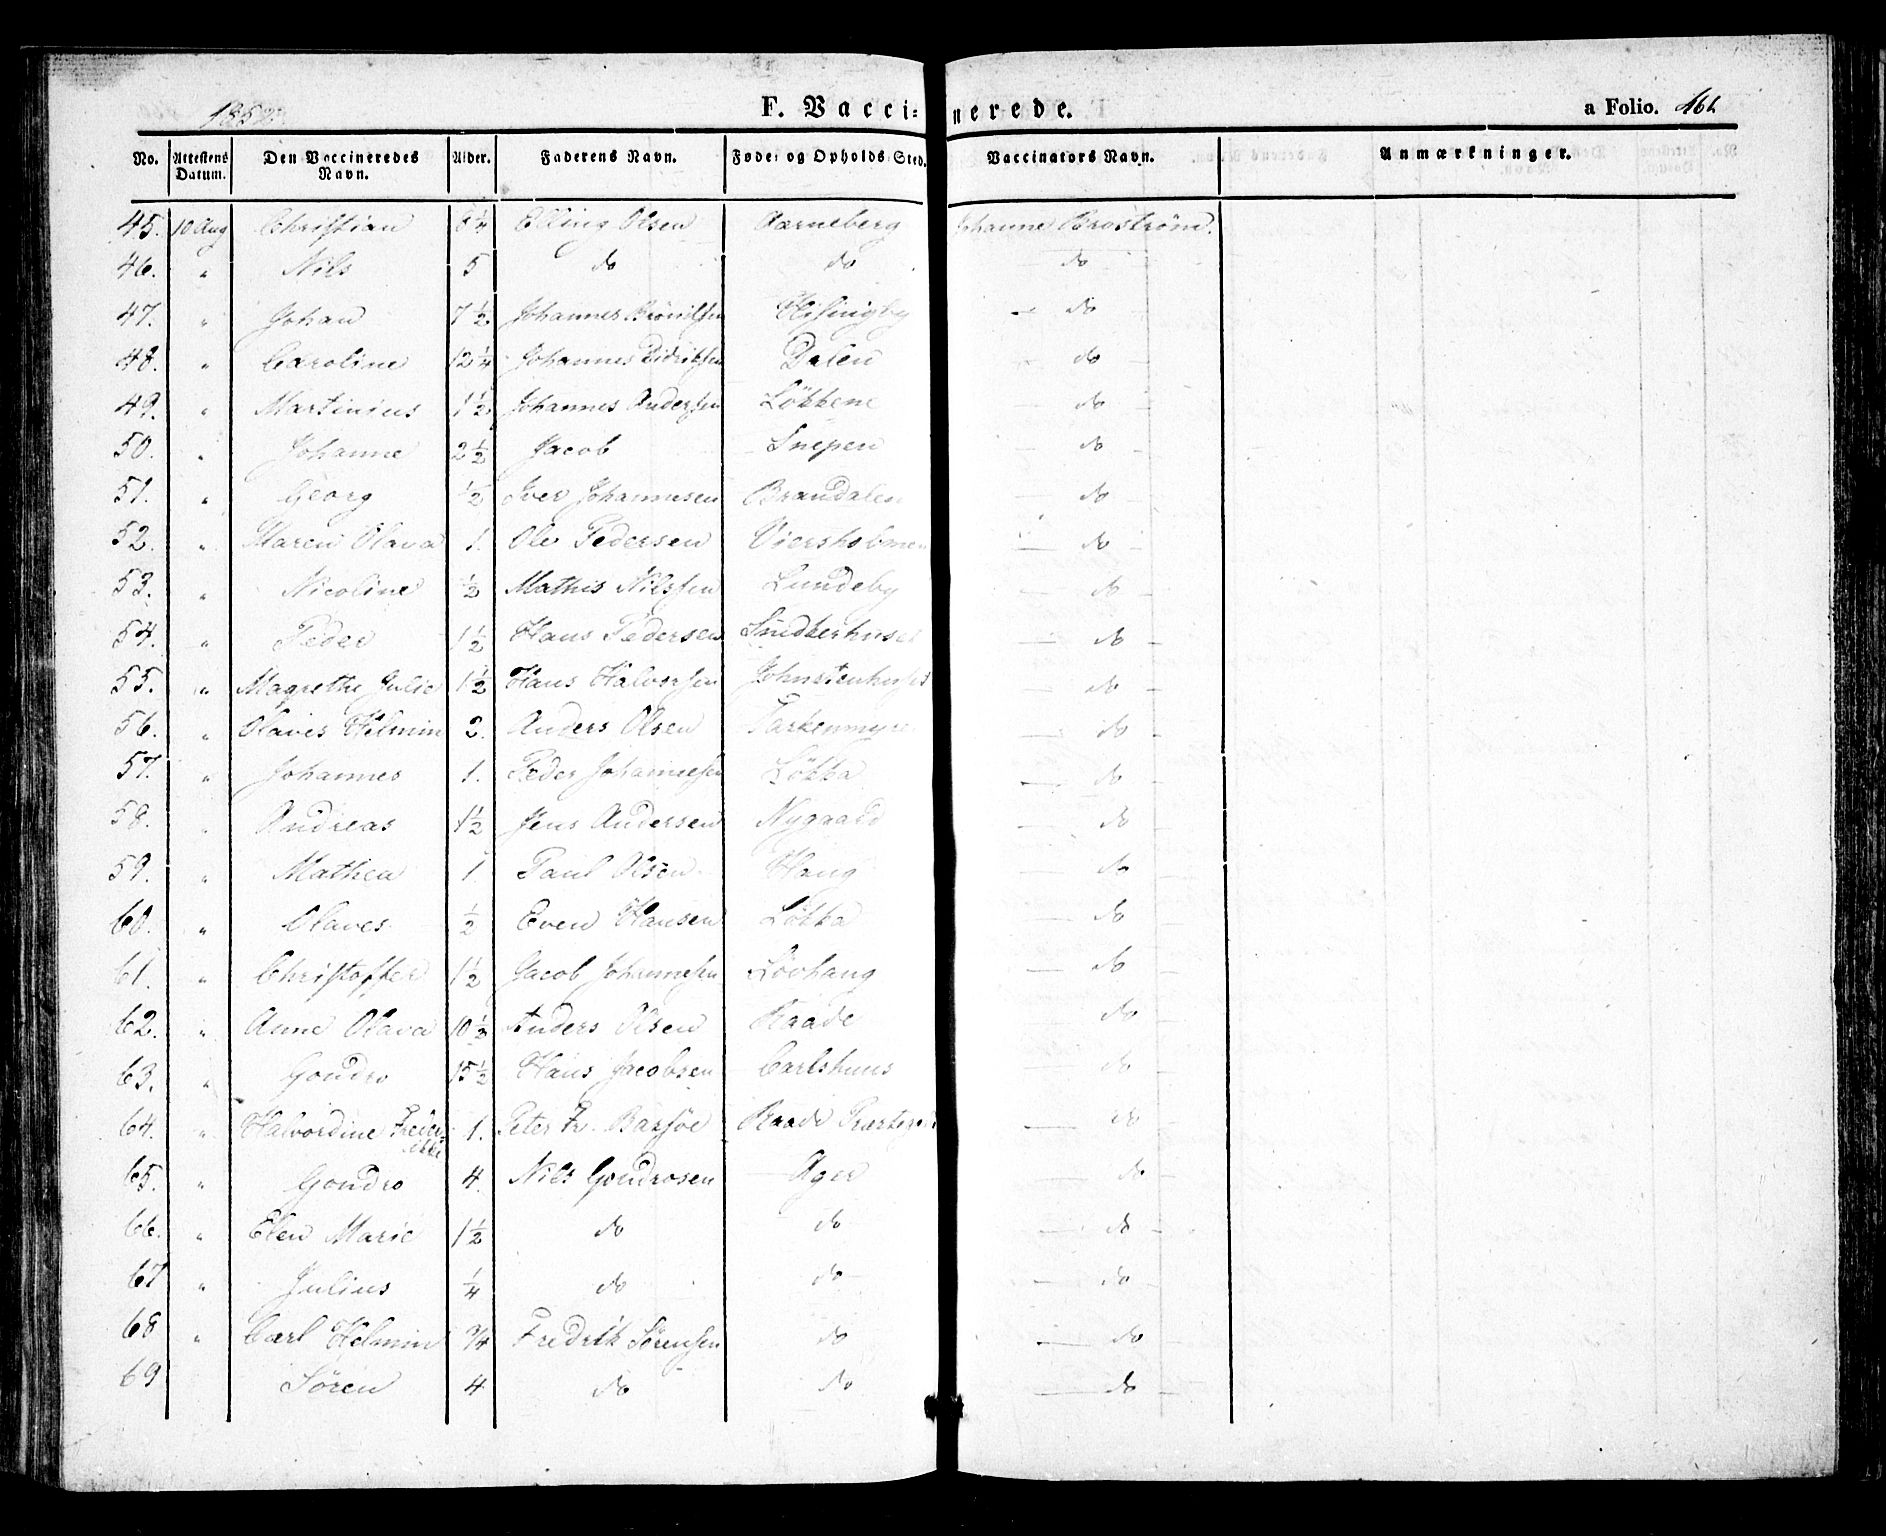 1852.
F. Vaccinerede.
a Folio. 461
No. Attestens Datum. Den Vaccineredes Navn. Alder. Faderens Navn. Føde- og Opholds-Sted. Vaccinators Navn. Anmærkninger.
45. 10 Aug Christian 6¼ Elling Olsen Aarneberg Johanne Broström.
46. " Nils 5 do do do
47. " Johan 7½ Johannes Hisingby do
48. " Caroline 12¼ Johannes Didriksen Dalen do
49. " Martinius 1½ Johannes Anderssen Lökkene do
50. " Johanne 2½ Jacob Snepen do
51. " Georg ½ Iver Johannesen Brandalen do
52. " Maren Olava 1. Ole Pedersen Viersholmen do
53. " Nicoline ½ Mathis Nilssen Lundeby do
54. " Peder 1½ Hans Pedersen Snedkerhuset do
55. " Magrethe Julie 1½ Hans Halvorsen Johnstenhuset do
56. " Olaves Helmin 2. Anders Olsen Tarkenmyre do
57. " Johannes 1. Peder Johannesen Lökka do
58. " Andreas 1½ Jens Andersen Nygaard do
59. " Mathea 1. Paul Olsen Haug do
60. " Olaves ½ Even Hansen Lökka do
61. " Christoffer 1½ Jacob Johannesen Lövhaug do
62. " Anne Olava 10½ Anders Olsen Raade do
63. " Gondro 15½ Hans Jacobsen Carlshuus do
64. " Halvordine Frederikke 1. Peter Fr. Barsøe Raade Præstegd do
65. " Gondro 4. Nils Gondrosen Ager do
66. " Elen Marie 1½ do do do
67 " Julius ¼ do do do
68 " Carl Helmin ¾ Fredrik Sørensen do do
69 Sören 4 do do do